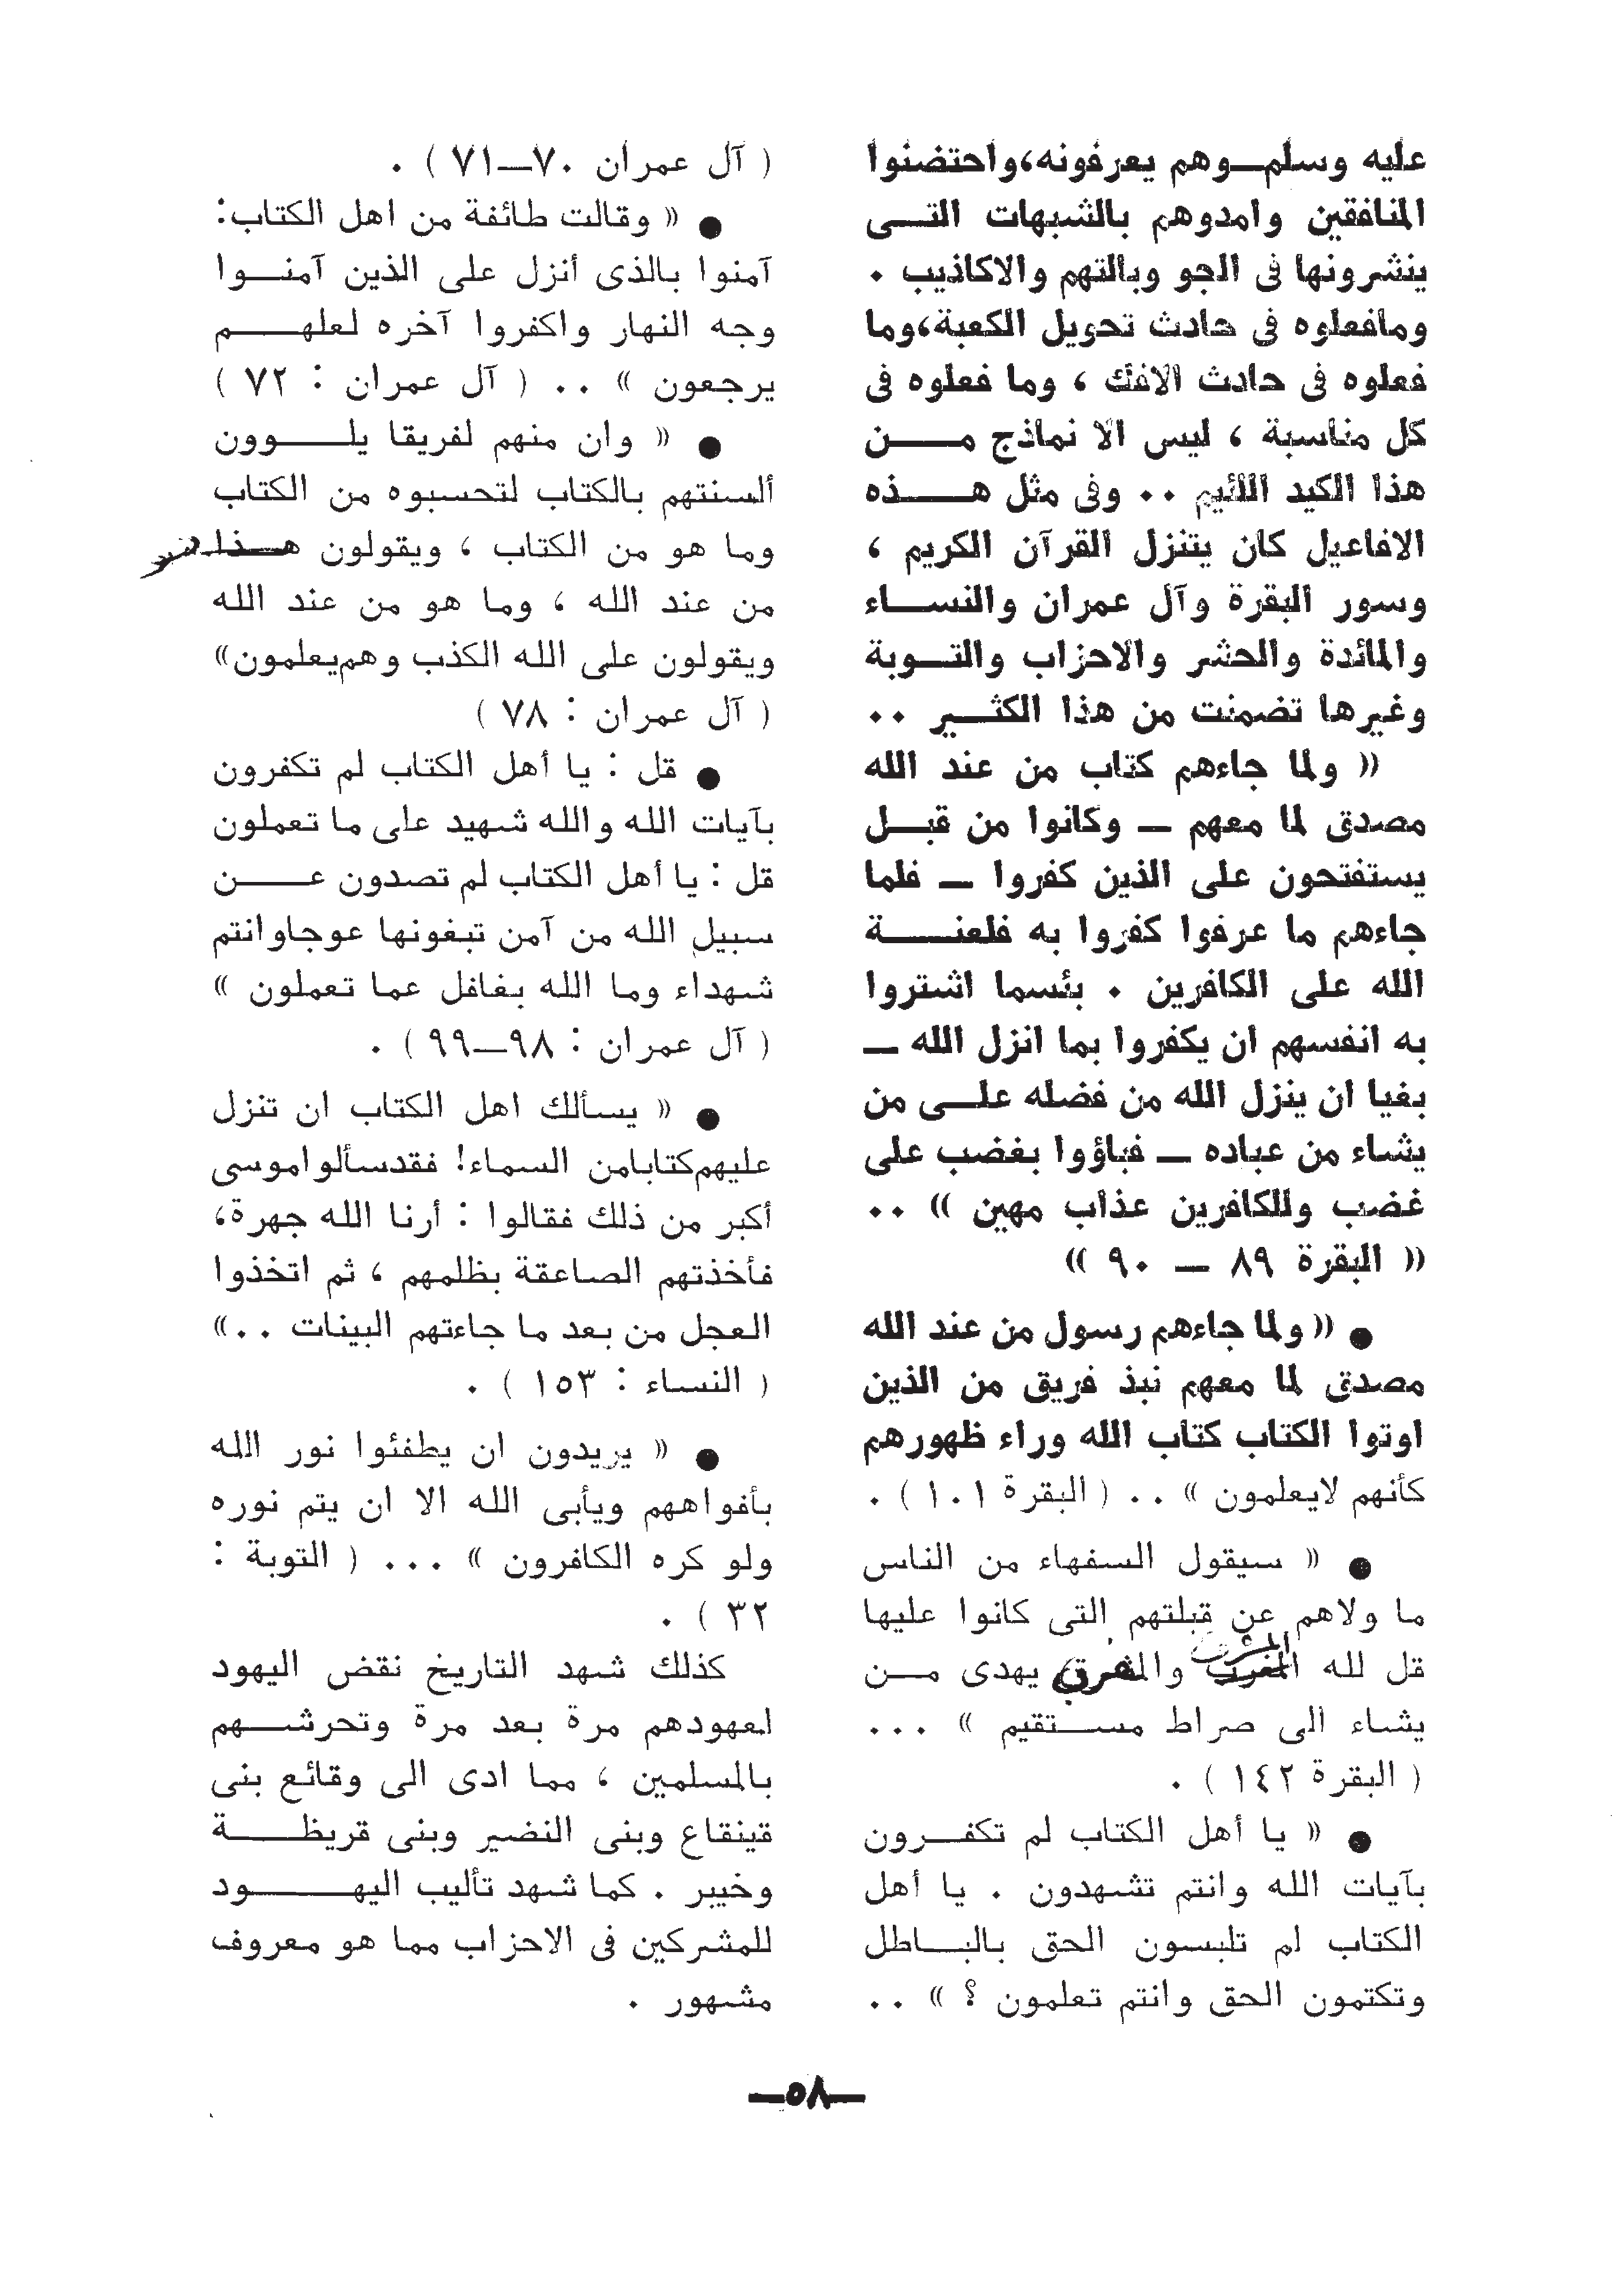 عليه وسلم—وهم يعرفونه،واحتضنوا
المنافقين وامدوهم بالشبهات التى
ينشرونها فى الجو وبالتهم والاكاذيب .
ومافعلوه فى حادث تحويل الكعبة،وما
فعلوه فى حادث الافك ، وما فعلوه فى
كل مناسبة ، ليس الا نماذج من
هذا الكيد اللئيم .. وفى مثل هذه
الافاعيل كان يتنزل القرآن الكريم ،
وسور البقرة وآل عمران والنساء
والمائدة والحشر والاحزاب والتوبة
وغيرها تضمنت من هذا الكثير ..
« ولما جاءهم كتاب من عند الله
مصدق لما معهم — وكانوا من قبل
يستفتحون على الذين كفروا — فلما
جاءهم ما عرفوا كفروا به فلعنة
الله على الكافرين . بئسما اشتروا
به انفسهم ان يكفروا بما انزل الله —
بغيا ان ينزل الله من فضله على من
يشاء من عباده — فباؤوا بغضب على
غضب وللكافرين عذاب مهين » ..
« البقرة ٨٩ — ٩٠ »
● « ولما جاءهم رسول من عند الله
مصدق لما معهم نبذ فريق من الذين
اوتوا الكتاب كتاب الله وراء ظهورهم
كأنهم لايعلمون » .. ( البقرة ١٠١ ) .
● « سيقول السفهاء من الناس
ما ولاهم عن قبلتهم التى كانوا عليها
المشرق
قل لله المغرب والمشرق يهدى من
يشاء الى صراط مستقيم » ...
( البقرة ١٤٢ ) .
● « يا أهل الكتاب لم تكفرون
بآيات الله وانتم تشهدون . يا أهل
الكتاب لم تلبسون الحق بالباطل
وتكتمون الحق وانتم تعلمون ؟ » ..
( آل عمران ٧٠—٧١ ) .
● « وقالت طائفة من اهل الكتاب:
آمنوا بالذى أنزل على الذين آمنوا
وجه النهار واكفروا آخره لعلهم
يرجعون » .. ( آل عمران : ٧٢ )
● « وان منهم لفريقا يلوون
ألسنتهم بالكتاب لتحسبوه من الكتاب
وما هو من الكتاب ، ويقولون هذا هو
من عند الله ، وما هو من عند الله
ويقولون على الله الكذب وهم يعلمون»
( آل عمران : ٧٨ )
● قل : يا أهل الكتاب لم تكفرون
بآيات الله والله شهيد على ما تعملون
قل : يا أهل الكتاب لم تصدون عن
سبيل الله من آمن تبغونها عوجاوانتم
شهداء وما الله بغافل عما تعملون »
( آل عمران : ٩٨—٩٩ ) .
● « يسألك اهل الكتاب ان تنزل
عليهم كتابامن السماء! فقدسألواموسى
أكبر من ذلك فقالوا : أرنا الله جهرة،
فأخذتهم الصاعقة بظلمهم ، ثم اتخذوا
العجل من بعد ما جاءتهم البينات ..»
( النساء : ١٥٣ ) .
● « يريدون ان يطفئوا نور الله
بأفواههم ويأبى الله الا ان يتم نوره
ولو كره الكافرون » ... ( التوبة :
٣٢ ) .
كذلك شهد التاريخ نقض اليهود
لعهودهم مرة بعد مرة وتحرشهم
بالمسلمين ، مما ادى الى وقائع بنى
قينقاع وبنى النضير وبنى قريظة
وخيبر . كما شهد تأليب اليهود
للمشركين فى الاحزاب مما هو معروف
مشهور .
—٥٨—